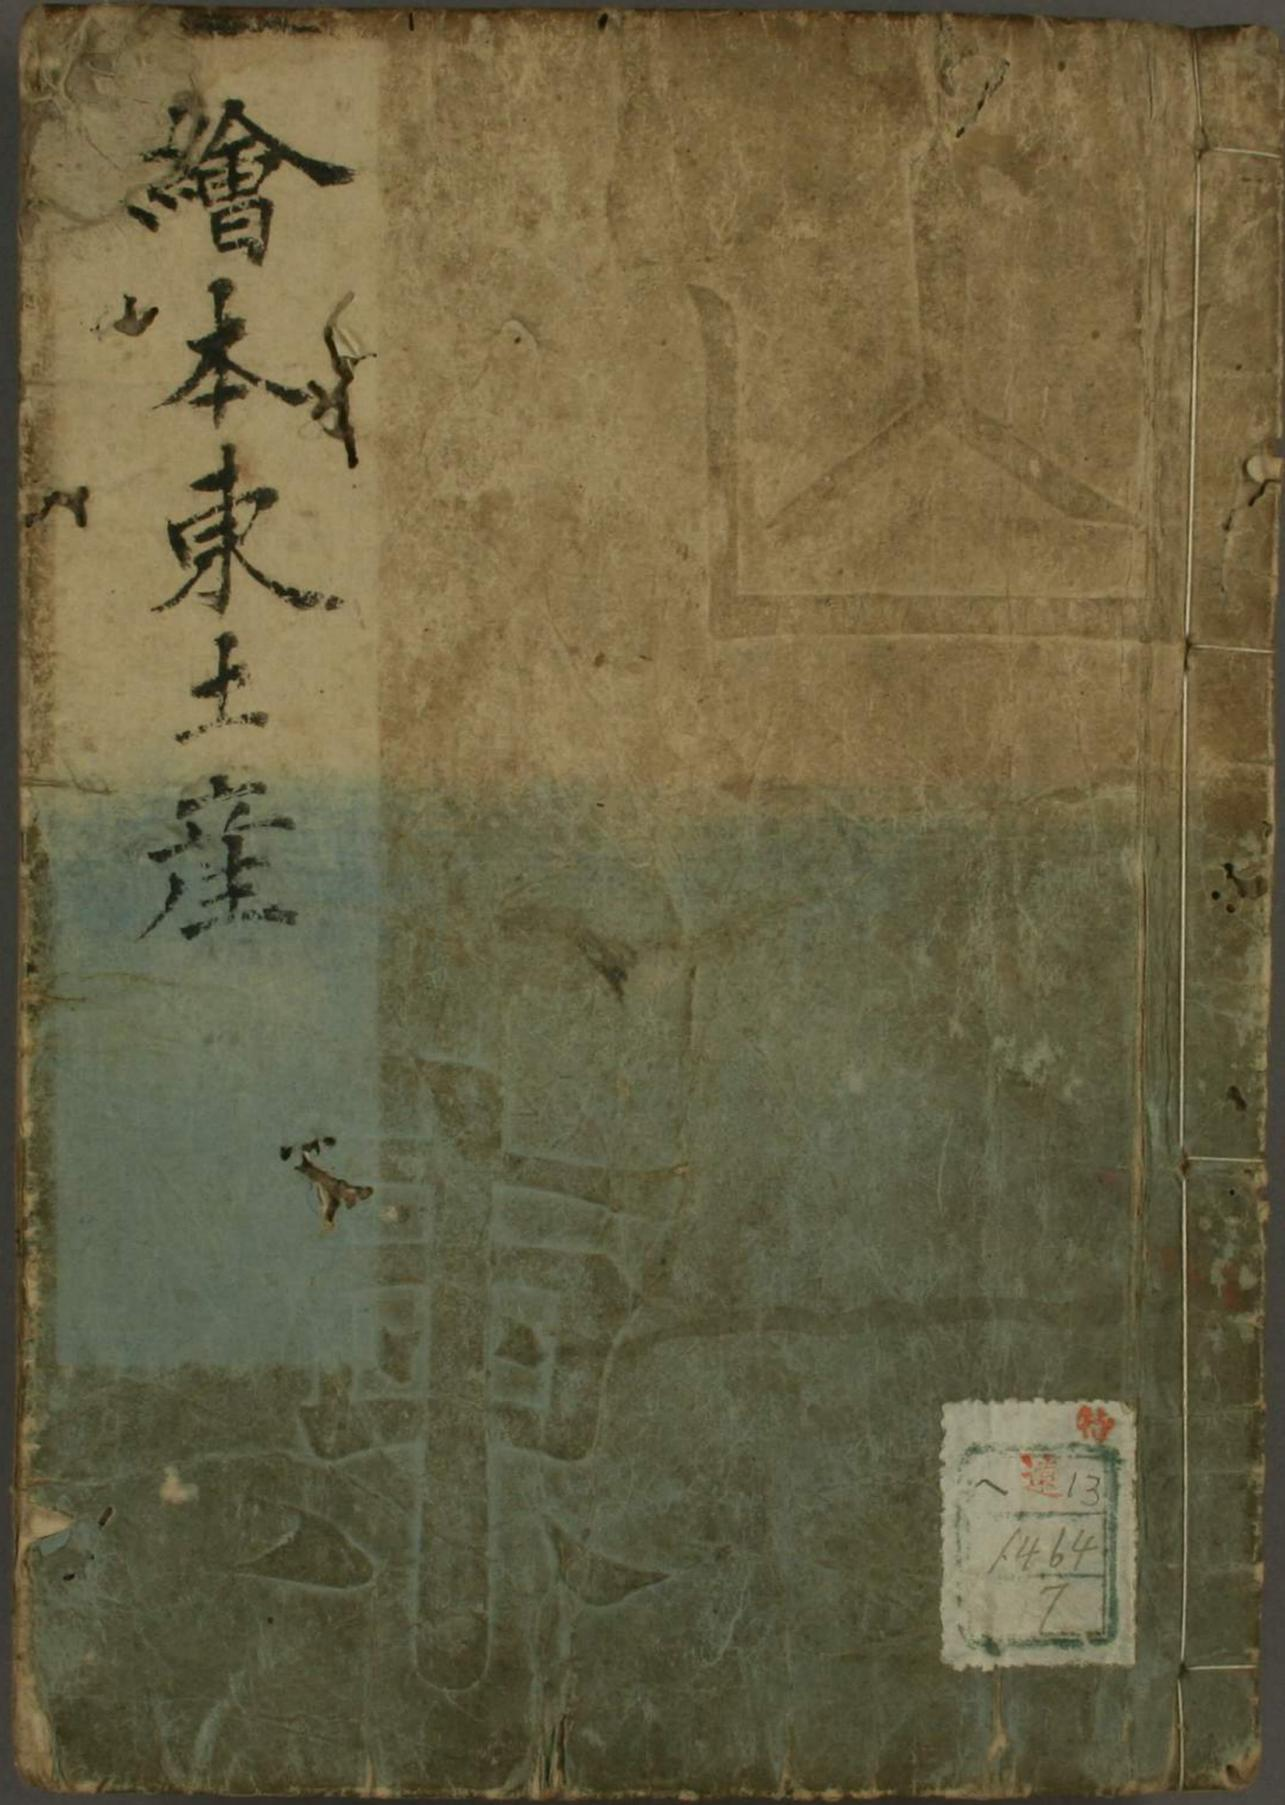 繪本東土産
特
ヘ遠13
1464
7